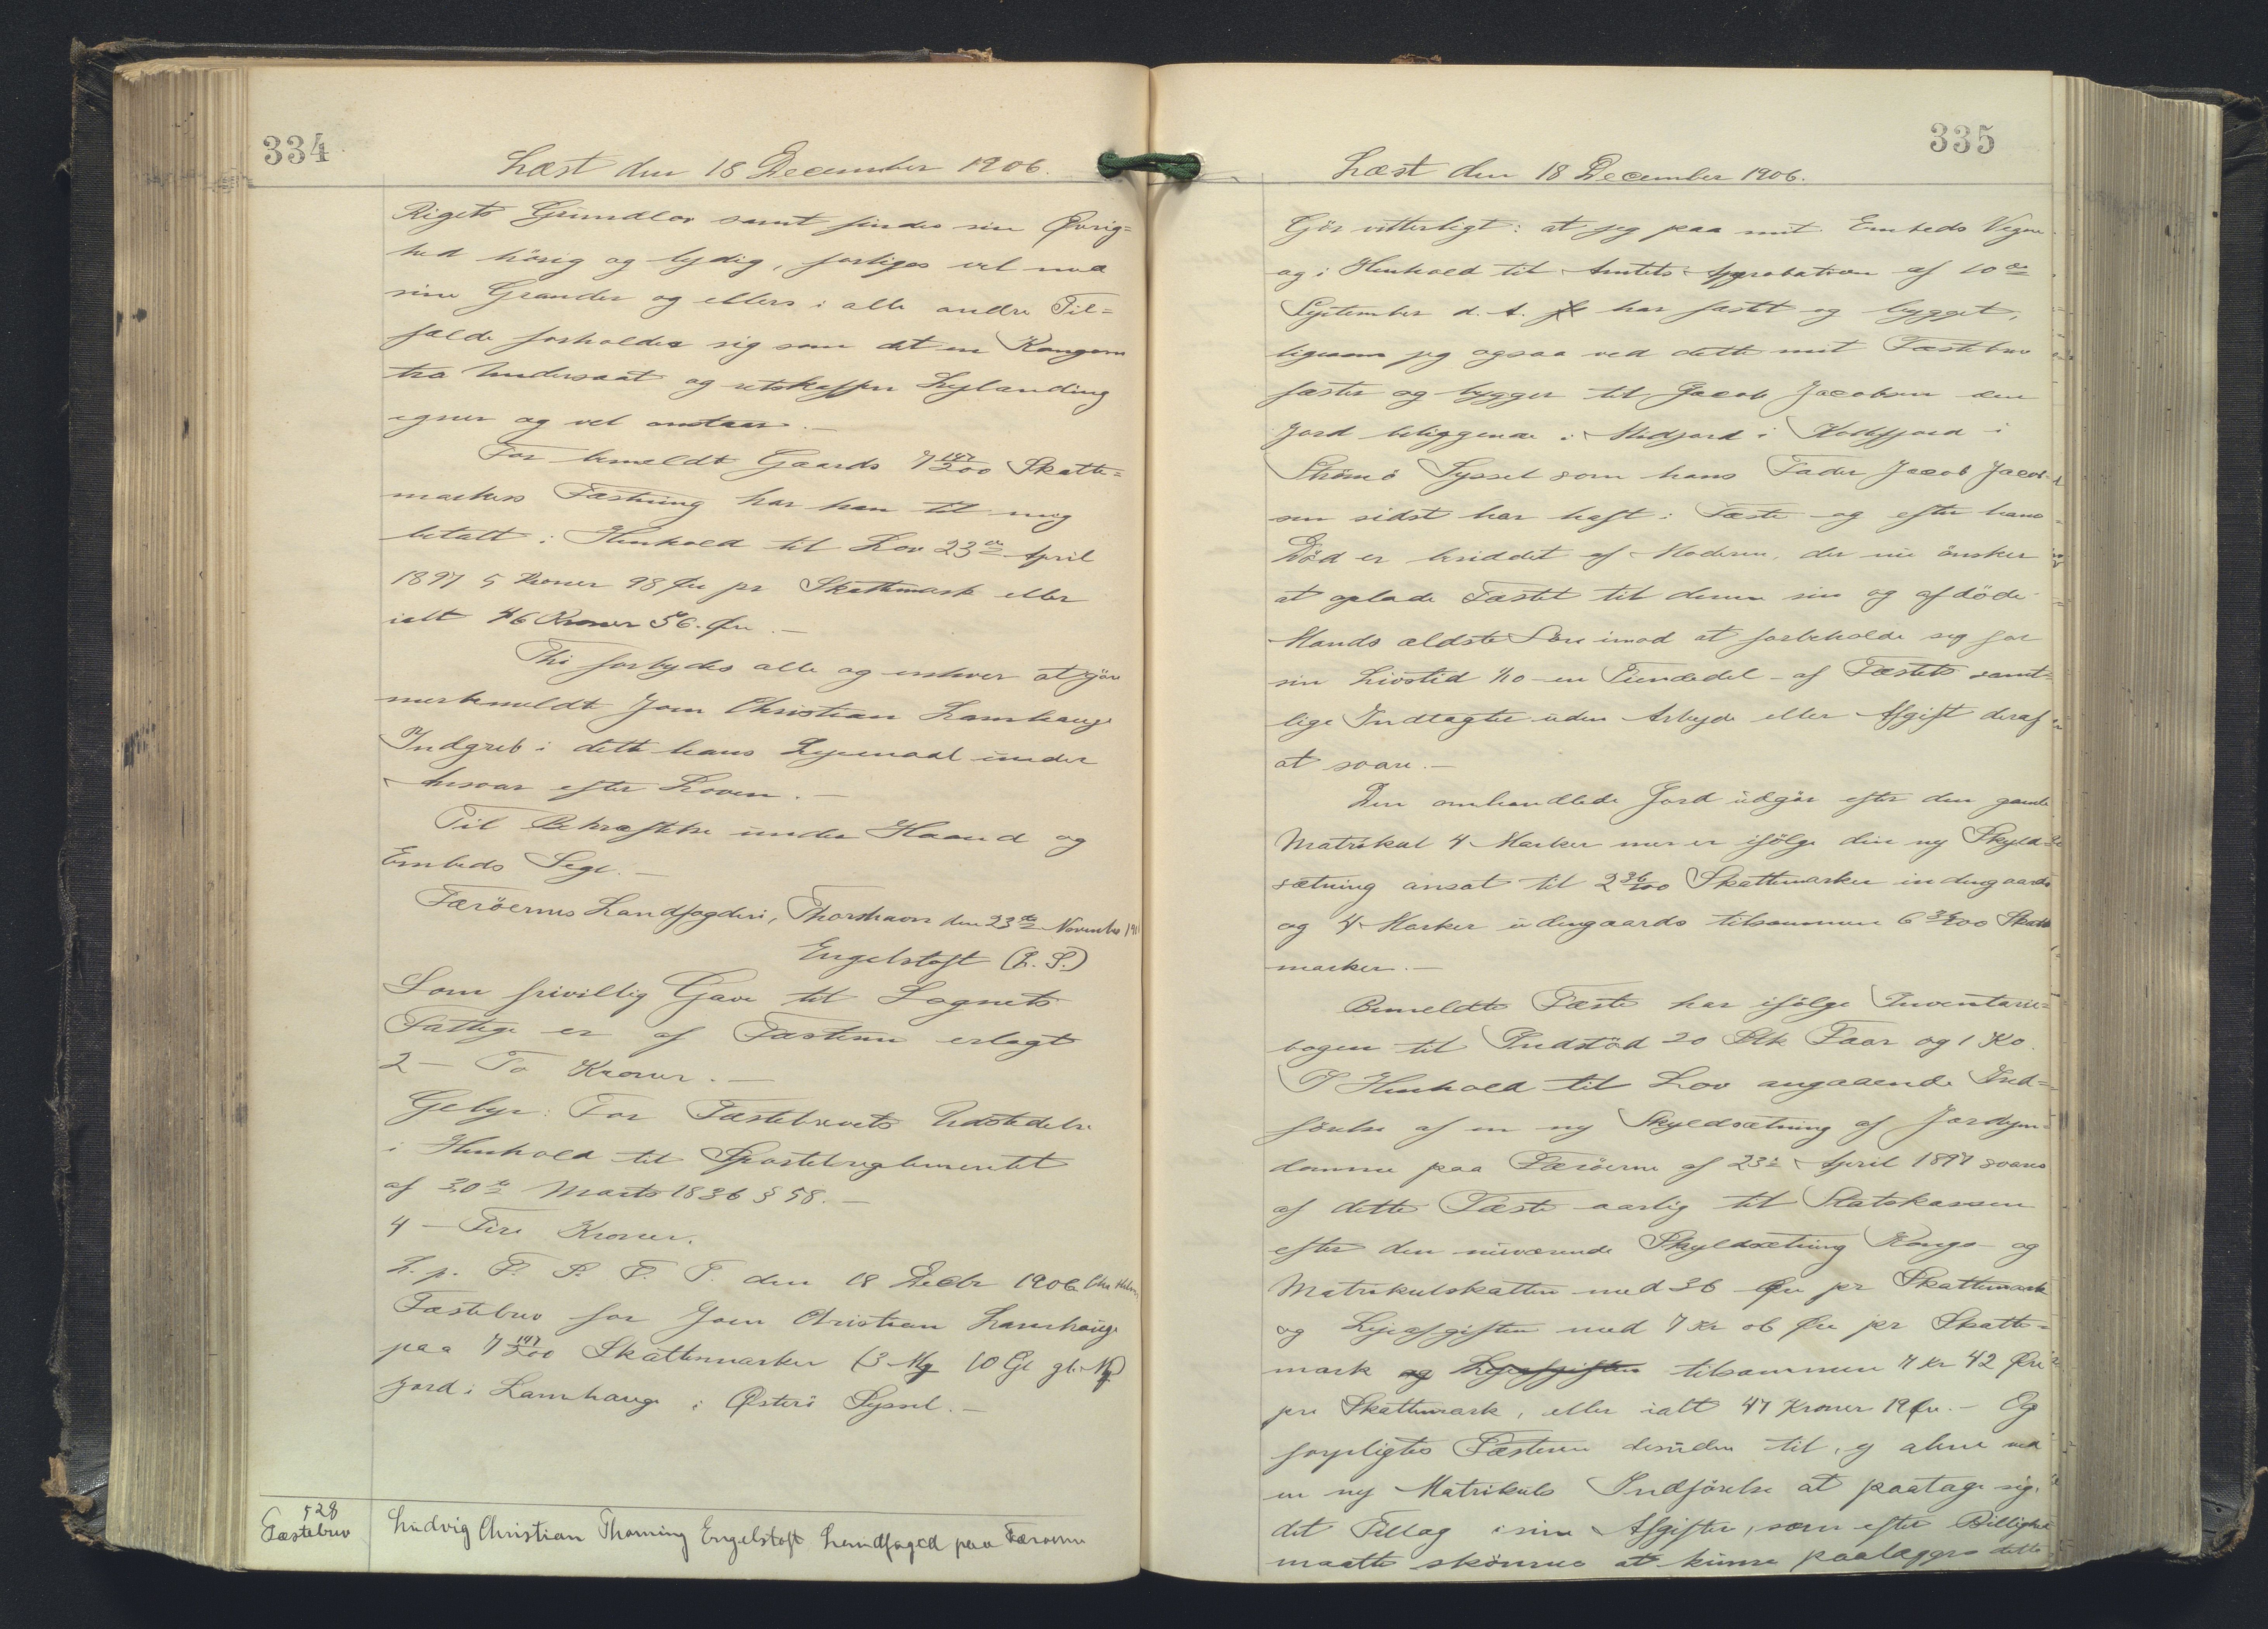 334
Læst den 18 December 1906.
Rigets Grundlov samt findes sin Øvrig=
hed hörig og lydig, forliges vel med
sine Grander og ellers i alle andre Til=
fælde forholder sig som det en Kongens
tro Undersaat og retskaffen Lejlænding
egner og vel anstaar.—
For bemeldt Gaards 7 147/200 Skatte=
markers Fæstning har han til mig
betalt i Henhold til Lov 23de April
1897 5 Kroner 98 Øre pr Skattemark eller
ialt 46 Kroner 56 Øre.—
Thi forbydes alle og enhver at gjöre
merbemeldt Joen Christian Lamhauge
Indgreb i dette hans Lejemaal under
Ansvar efter Loven.—
Til Bekræftelse under Haand og
Embeds Segl.—
Færöernes Landfogderi, Thorshavn den 23de November
Engelstoft (L. S.)
Som frivillig Gave til Sognets
Fattige er af Fæsteren erlagt
2 — To Kroner.—
Gebyr: For Fæstebrevets Udstedelse
i Henhold til Sportelreglementet
af 30te Marts 1836 § 58.—
4 — Fire Kroner.
L. p. F. S. F. T. den 18 Decbr 1906
Fæstebrev for Joen Christian Lamhauge
paa 7 147/200 Skattemarker (3 Mk 10 Gl gl. Mk)
Jord i Lamhauge i Østerö Syssel.—
528
Fæstebrev
Ludvig Christian Thorning Engelstoft Landfoged paa Færöerne
335
Læst den 18 December 1906.
Gjör vitterligt: at jeg paa mit Embeds Vegne
og i Henhold til Amtets Approbation af 10de
September d. A. har fæstet og bygget,
ligesom jeg ogsaa ved dette mit Fæstebrev
fæster og bygger til Jacob Jacobsen den
Jord beliggende i Midjord i Kollefjord i
Strömö Syssel som hans Fader Jacob Jacob=
sen sidst har haft i Fæste og efter hans
Död er besiddet af Moderen, der nu önsker
at oplade Fæstet til denne sin og afdöde
Mands ældste Sön imod at forbeholde sig for
sin Livstid 1/10 - en Tiendedel - af Fæstets samt=
lige Indtægter uden Arbejde eller Afgift deraf
at svare.—
Den omhandlede Jord udgör efter den gamle
Matrikul 4 Marker men er ifölge den ny Skyld=
sætning ansat til 2 36/100 Skattemarker indengaards
og 4 Marker udengaards tilsammen 6 36/100 Skatte
marker.—
Bemeldte Fæste har ifölge Inventarie=
bogen til Indstöd 20 Stk Faar og 1 Ko.
I Henhold til Lov angaaende Ind=
förelse af en ny Skyldsætning af Jordejen=
domme paa Færöerne af 23de April 1897 svares
af dette Fæste aarlig til Statskassen
efter den nuværende Skyldsætning Konge- og
Matrikulskatten med 36 Øre pr Skattemark
og Lejeafgiften med 7 Kr 06 Øre pr Skatte=
mark og Lejeafgiften tilsammen 7 Kr 42 Øre
pr Skattemark, eller ialt 47 Kroner 19 Øre.— Og
forpligtes Fæsteren desuden til, ej alene ved
en ny Matrikuls Indförelse at paatage sig
det Tillæg i sine Afgifter, som efter Billighed
maatte skönnes at kunne paalægges dette